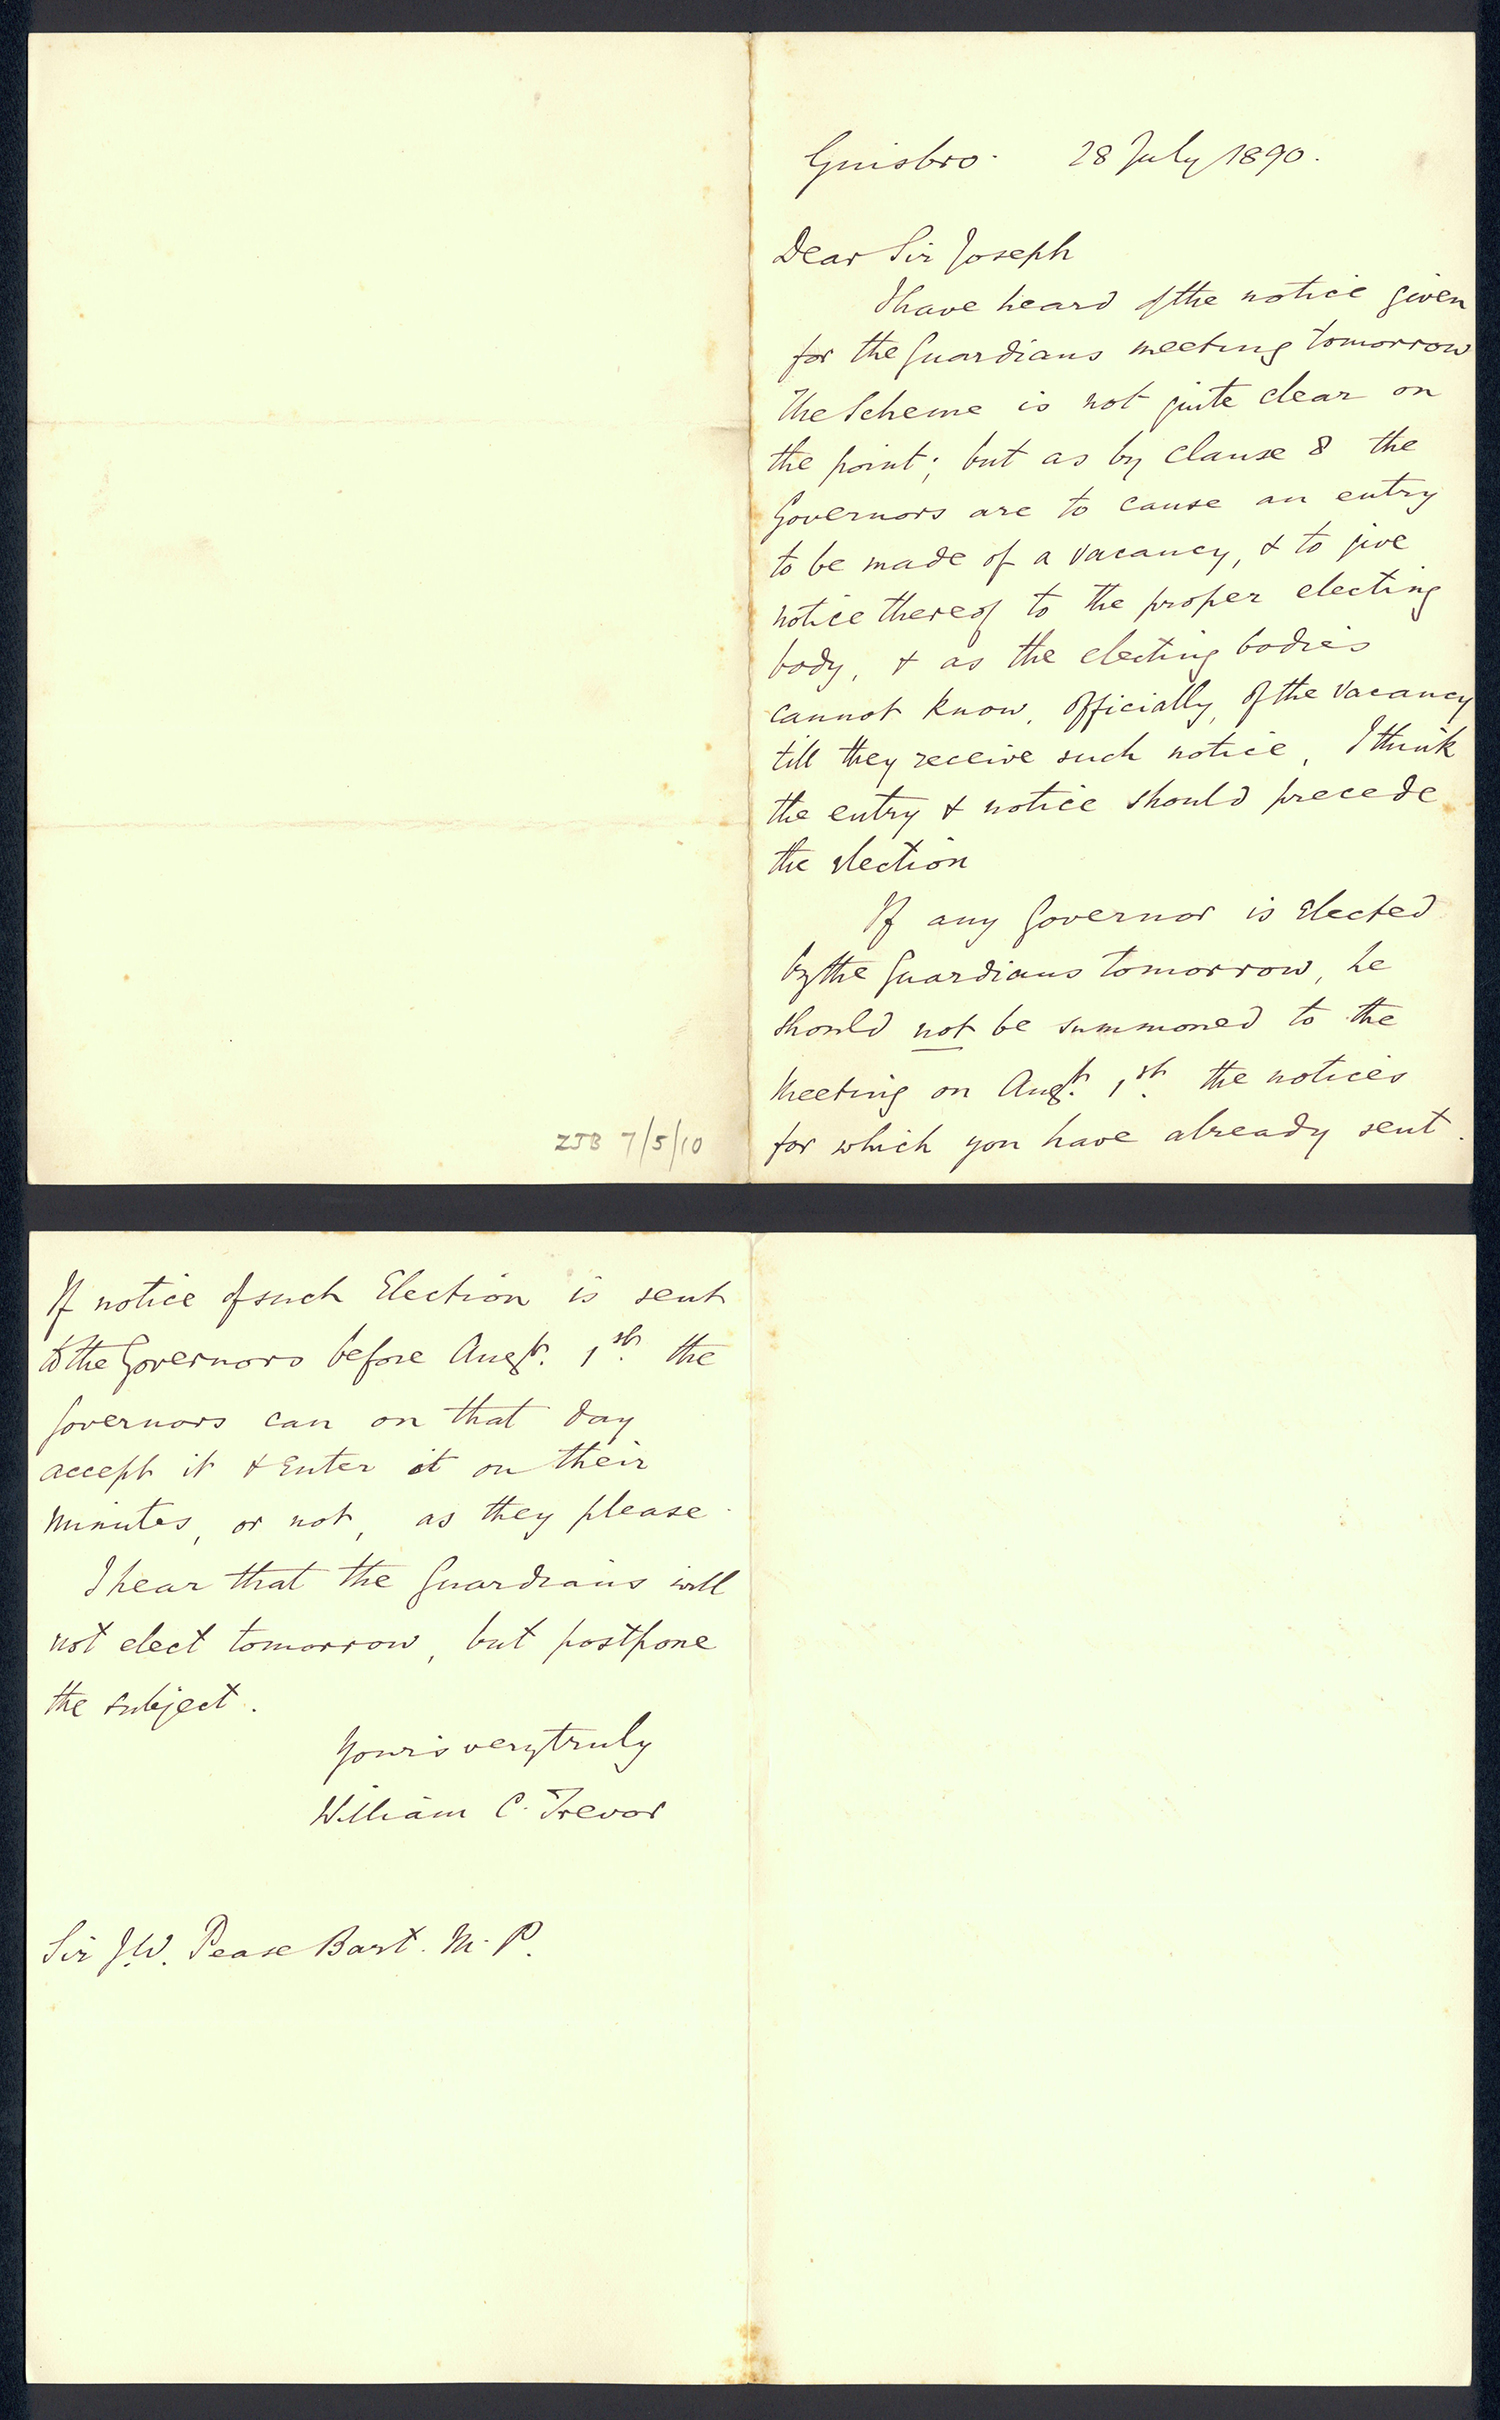 Guisbro. 28 July 1890.
Dear Sir Joseph
I have heard of the notice given
for the Guardians meeting tomorrow
The Scheme is not quite clear on
the point; but as by Clause 8 the
Governors are to cause an entry
to be made of a vacancy, & to give
notice thereof to the proper electing
body, & as the electing bodies
cannot know, officially, of the vacancy
till they receive such notice, I think
the entry & notice should precede
the election
If any Governor is elected
by the Guardians tomorrow, he
should not be summoned to the
Meeting on Augt. 1st. the notices
for which you have already sent.
ZJB 7/5/10
If notice of such Election is sent
to the Governors before Augt. 1st. the
Governors can on that day
accept it & enter it on their
minutes, or not, as they please.
I hear that the Guardians will
not elect tomorrow, but postpone
the subject.
Yours very truly
William C. Trevor
Sir J.W. Pease Bart. M.P.